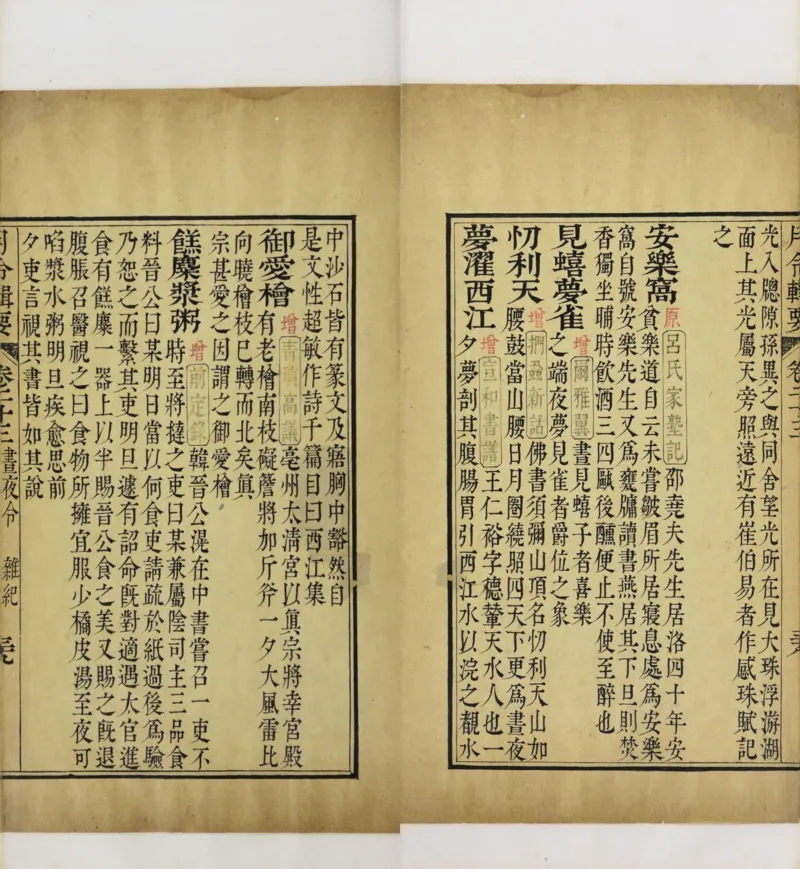 月令輯要 卷二十三
光入牕隙孫異之與同舍望光所在見大珠浮游湖
面上其光屬天旁照遠近有崔伯易者作感珠賦記
之
安樂窩 原 呂氏家塾記 邵堯夫先生居洛四十年安
貧樂道自云未嘗皺眉所居寢息處爲安樂
窩自號安樂先生又爲甕牖讀書燕居其下旦則焚
香獨坐晡時飲酒三四甌後醺便止不使至醉也
見蟢夢雀 增 爾雅翼 晝見蟢子者喜樂
之端夜夢見雀者爵位之象
忉利天 增 捫蝨新話 佛書須彌山頂名忉利天山如
腰鼓當山腰日月圈繞照四天下更爲晝夜
夢濯西江 增 宣和書譜 王仁裕字德輦天水人也一
夕夢剖其腹腸胃引西江水以浣之覩水
中沙石皆有篆文及寤胸中豁然自
是文性超敏作詩千篇目曰西江集
御愛檜 增 青瑣高議 亳州太淸宮以眞宗將幸宮殿
有老檜南枝礙簷將加斤斧一夕大風雷比
向曉檜枝已轉而北矣眞
宗甚愛之因謂之御愛檜
餻麋漿粥 增 前定錄 韓晉公滉在中書嘗召一吏不
時至將撻之吏曰某兼屬陰司主三品食
料晉公曰某明日當以何食吏請疏於紙過後爲驗
乃恕之而繫其吏明旦遽有詔命旣對適遇太官進
食有餻麋一器上以半賜晉公食之美又賜之旣退
腹脹召醫視之曰食物所擁宜服少橘皮湯至夜可
啗漿水粥明旦疾愈思前
夕吏言視其書皆如其說
月令輯要 卷二十三 晝夜令 雜紀